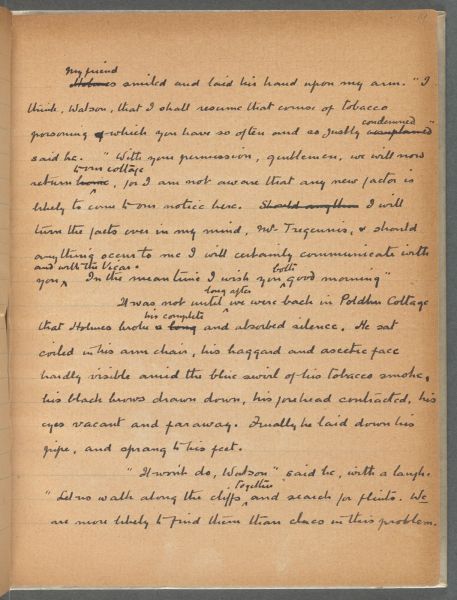 My friend
Holmes smiled and laid his hand upon my arm. "I
think, Watson, that I shall resume that course of tobacco
condemned
poisoning of which you have so often and so justly complained"
said he. "With your permission, gentlemen, we will now
to our cottage
return home, for I am not aware that any new factor is
likely to come to our notice here. Should anythin I will
turn the facts over in my mind, Mr Tregennis, & should
anything occur to me I will certainly communicate with
and with the Vicar.
you. In the mean time I wish you both good morning"
long after
It was not until we were back in Poldhu Cottage
his complete
that Holmes broke a long and absorbed silence. He sat
coiled in his arm chair, his haggard and ascetic face
hardly visible amid the blue swirl of his tobacco smoke,
his black brows drawn down, his forehead contracted, his
eyes vacant and faraway. Finally he laid down his
pipe, and sprang to his feet.
"It won't do, Watson" said he, with a laugh.
together
"Let us walk along the cliffs and search for flints. We
are more likely to find them than clues in this problem.